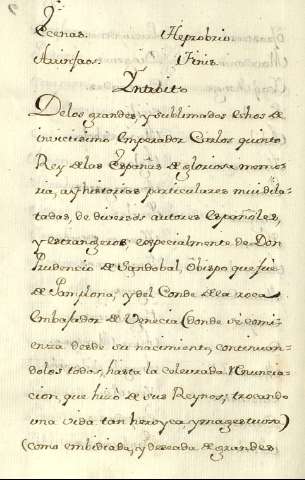 Ecenas. Heprobrio
Avinsaos. Finis.
Yntroito
De los grandes, y sublimados echos de
invictisimo Emperador Carlos quinto
Rey de las Españas de gloriosa memo
ria, ay historias particulares mui dila
tadas, de diversos autores Españoles,
y estrangeros, especialmente de Don
Prudencio de Sandobal, Obispo que fue
de Pamplona, y del Conde de la roca
Embaxador de Venecia (donde se comi
enza desde su nacimiento, continuan
dolos todos, hasta la celebrada Renuncia
cion, que hizo de sus Reynos, trocando
una vida tan heroyca, y magestuosa)
(como embidiada, y deseada de grandes,